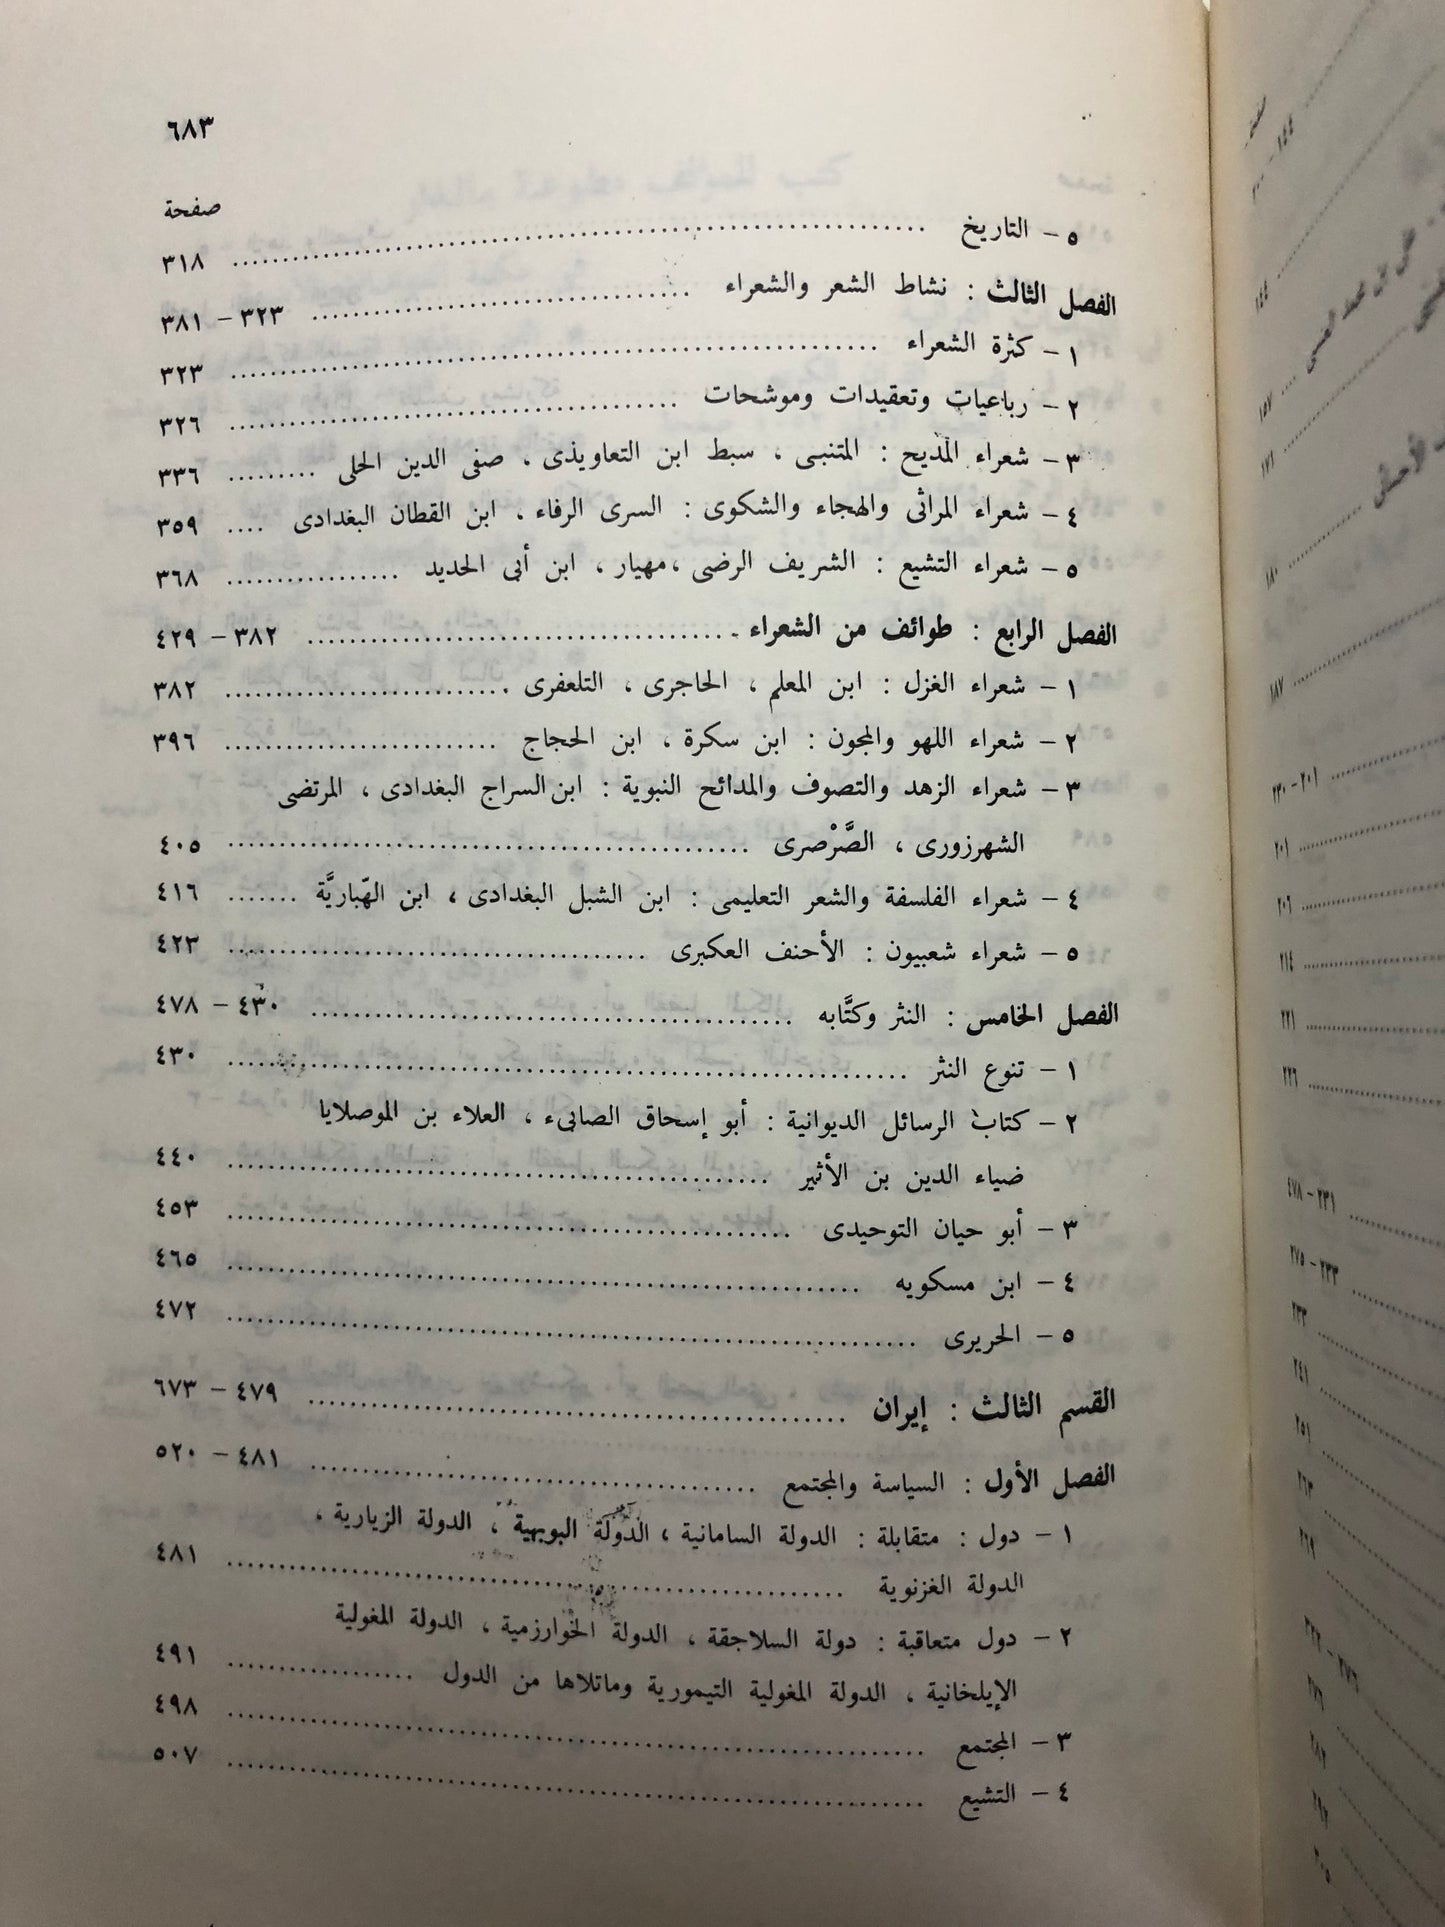 ٦٨٣
صفحة
٥ - التاريخ ........ ٣١٨
الفصل الثالث : نشاط الشعر والشعراء ........ ٣٢٣ - ٣٨١
١ - كثرة الشعراء ........ ٣٢٣
٢ - رباعيات وتعقيدات وموشحات ........ ٣٢٦
٣ - شعراء المديح : المتنبى ، سبط ابن التعاويذى ، صفى الدين الحلى ........ ٣٣٦
٤ - شعراء المراثى والهجاء والشكوى : السرى الرفاء ، ابن القطان البغدادى .... ٣٥٩
٥ - شعراء التشيع : الشريف الرضى ، مهيار ، ابن أبى الحديد ........ ٣٦٨
الفصل الرابع : طوائف من الشعراء ........ ٣٨٢ - ٤٢٩
١ - شعراء الغزل : ابن المعلم ، الحاجرى ، التلعفرى ........ ٣٨٢
٢ - شعراء اللهو والمجون : ابن سكرة ، ابن الحجاج ........ ٣٩٦
٣ - شعراء الزهد والتصوف والمدائح النبوية : ابن السراج البغدادى ، المرتضى
الشهرزورى ، الصَّرْصرى ........ ٤٠٥
٤ - شعراء الفلسفة والشعر التعليمى : ابن الشبل البغدادى ، ابن الهّباريَّة ....... ٤١٦
٥ - شعراء شعبيون : الأحنف العكبرى ........ ٤٢٣
الفصل الخامس : النثر وكتَّابه ........ ٤٣٠ - ٤٧٨
١ - تنوع النثر ........ ٤٣٠
٢ - كتاب الرسائل الديوانية : أبو إسحاق الصابىء ، العلاء بن الموصلايا
ضياء الدين بن الأثير ........ ٤٤٠
٣ - أبو حيان التوحيدى ........ ٤٥٣
٤ - ابن مسكويه ........ ٤٦٥
٥ - الحريرى ........ ٤٧٢
القسم الثالث : إيران ........ ٤٧٩ - ٦٧٣
الفصل الأول : السياسة والمجتمع ........ ٤٨١ - ٥٢٠
١ - دول : متقابلة : الدولة السامانية ، الدولة البويهية ، الدولة الزيارية ،
الدولة الغزنوية ........ ٤٨١
٢ - دول متعاقبة : دولة السلاجقة ، الدولة الخوارزمية ، الدولة المغولية
الإيلخانية ، الدولة المغولية التيمورية وماتلاها من الدول ........ ٤٩١
٣ - المجتمع ........ ٤٩٨
٤ - التشيع ........ ٥٠٧